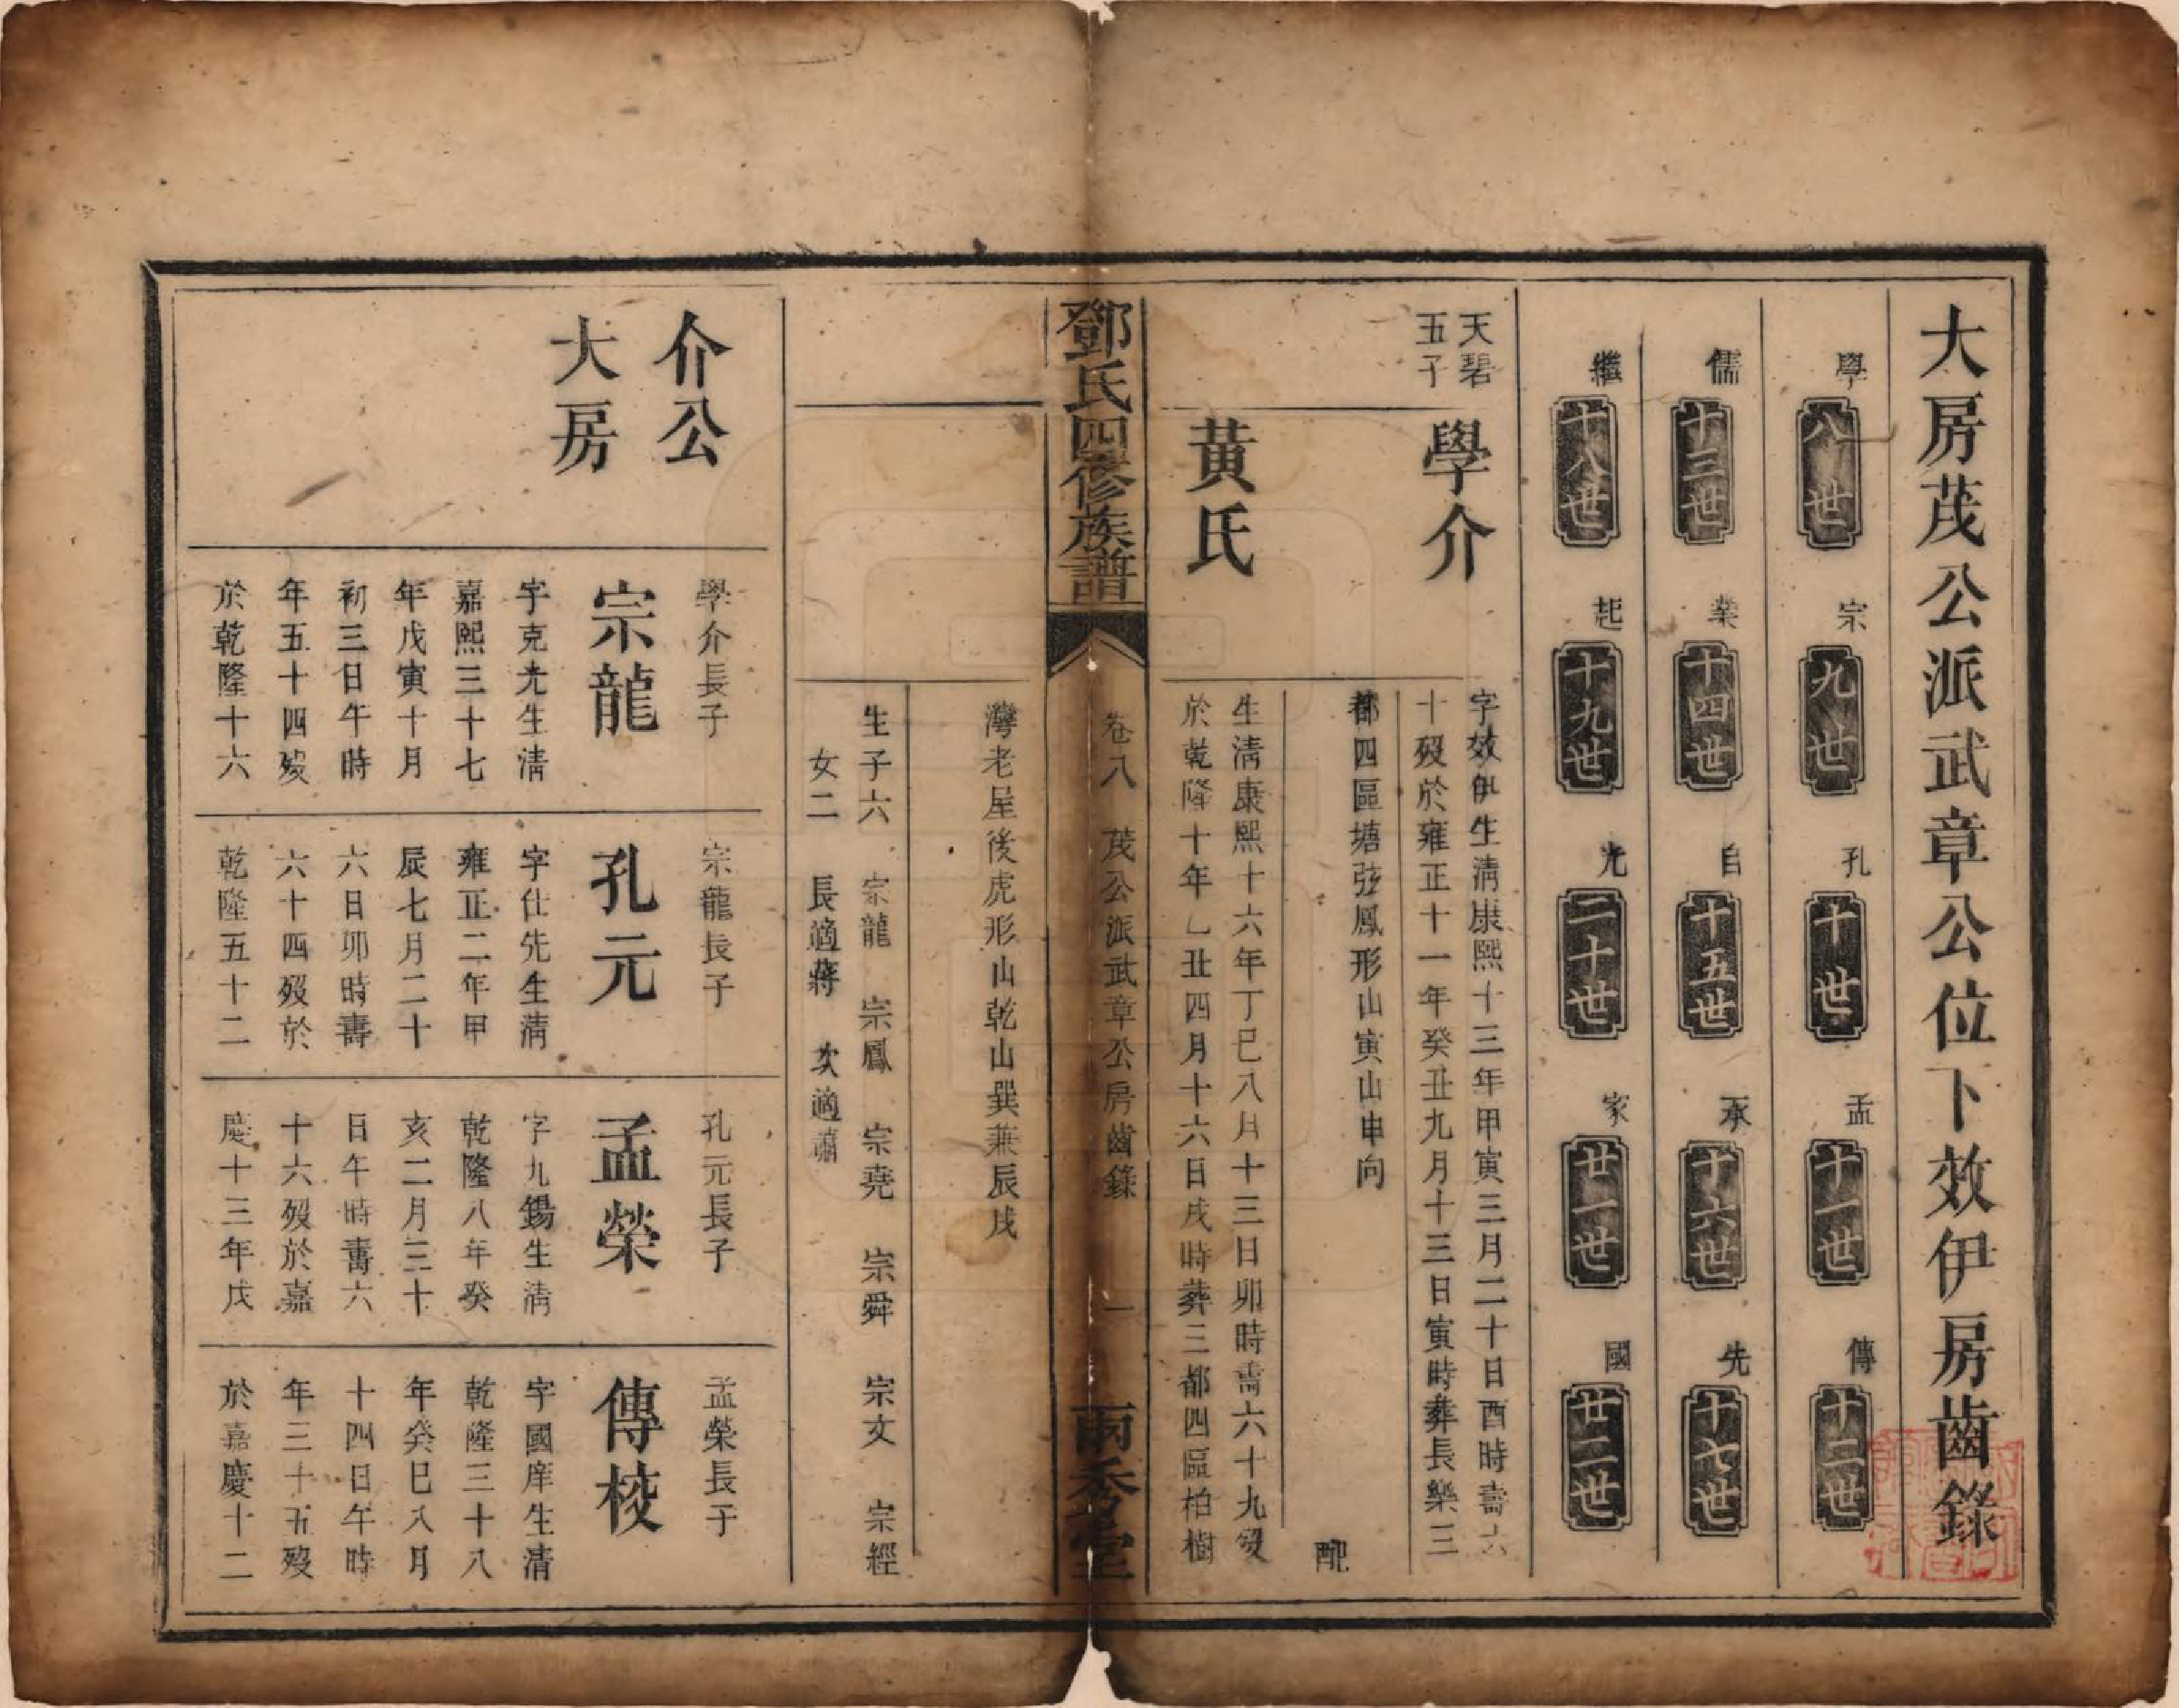 大房茂公派武章公位下效伊房齒錄
學 八世 宗 九世 孔 十世 孟 十一世 傳 十二世
儒 十三世 業 十四世 自 十五世 承 十六世 先 十七世
繼 十八世 起 十九世 光 二十世 家 廿一世 國 廿二世
天碧
五子
學介
字效伊生清康熙十三年甲寅三月二十日酉時壽六
十歿於雍正十一年癸丑九月十三日寅時葬長樂三
都四區塘弦鳳形山寅山申向
配
黃氏
生清康熙十六年丁巳八月十三日卯時壽六十九歿
於乾隆十年乙丑四月十六日戌時葬三都四區柏樹
鄧氏四修族譜
卷八 茂公派武章公房齒錄 一
兩秀堂
灣老屋後虎形山乾山巽兼辰戌
生子六 宗龍 宗鳳 宗堯 宗舜 宗文 宗經
女二 長適蔣 次適蕭
介公
大房
學介長子
宗龍
字克光生清
嘉熙三十七
年戊寅十月
初三日午時
年五十四歿
於乾隆十六
宗龍長子
孔元
字仕先生清
雍正二年甲
辰七月二十
六日卯時壽
六十四歿於
乾隆五十二
孔元長子
孟榮
字九錫生清
乾隆八年癸
亥二月三十
日午時壽六
十六歿於嘉
慶十三年戊
孟榮長子
傳校
字國庠生清
乾隆三十八
年癸巳八月
十四日午時
年三十五歿
於嘉慶十二